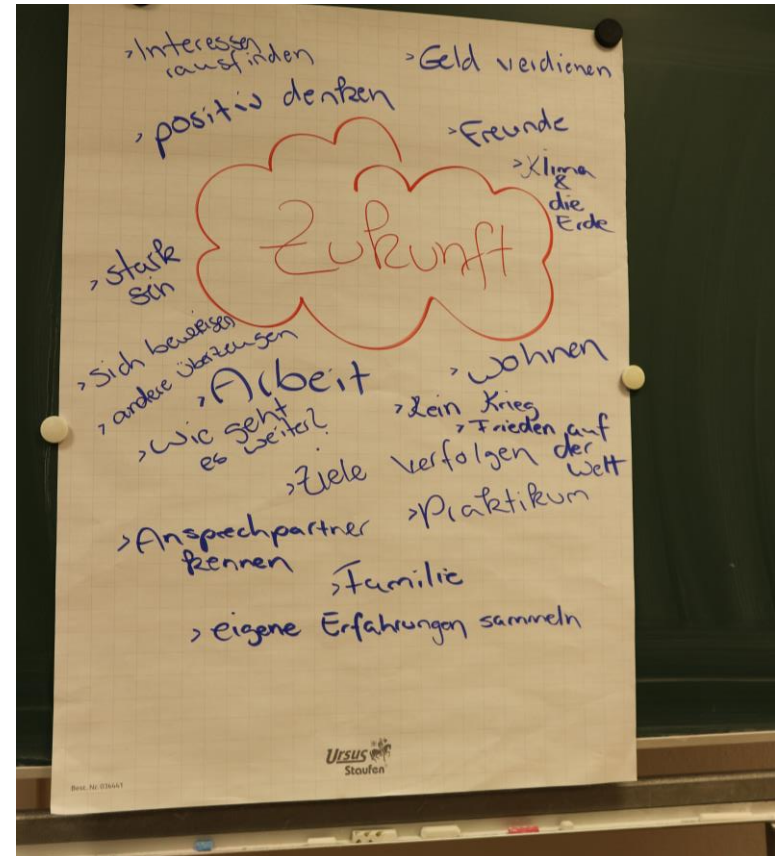 > Interessen
rausfinden
> Geld verdienen
> positiv denken
> Freunde
> Klima
&
die
Erde
Zukunft
> stark
sein
> sich beweisen
> andere überzeugen
> Arbeit
> wohnen
> Wie geht
es weiter?
> kein Krieg
> Frieden auf
der
Welt
> Ziele verfolgen
> Praktikum
> Ansprechpartner
kennen
> Familie
> eigene Erfahrungen sammeln
Ursus
Staufen
Best. Nr. 036441